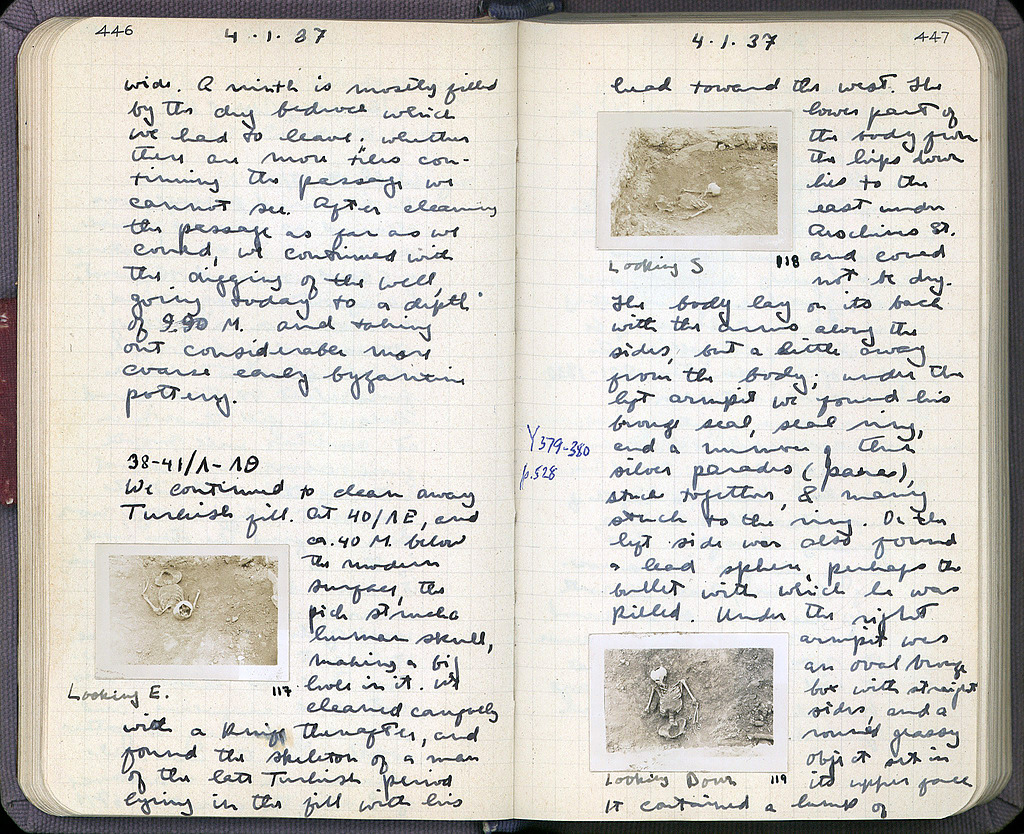 446
4.1.37
wide. A ninth is mostly filled
by the dug bedrock which
we had to leave; whether
there are more tiles con-
tinuing the passage we
cannot see. After cleaning
the passage as far as we
could, we continued with
the digging of the well,
going today to a depth
of 9.90 M. and taking
out considerable more
coarse early byzantine
pottery.
38-41/Λ-ΛΘ
We continued to clean away
Turkish fill. At 40/ΛE, and
ca. 40 M. below
the modern
surface, the
pick struck a
human skull,
making a big
hole in it. We
cleaned carefully
with a knife thereafter, and
found the skeleton of a man
of the late Turkish period
lying in the fill with his
Looking E.
117
4.1.37
447
head toward the west. The
lower part of
the body from
the hips down
lies to the
east under
Aeschines St.
and could
not be dug.
Looking S
118
The body lay on its back
with the arms along the
sides, but a little away
from the body; under the
left armpit we found his
bronze seal, seal ring,
and a number of thin
silver parades (paras),
stuck together, & many
stuck to the ring. On the
left side was also found
a lead sphere, perhaps the
bullet with which he was
killed. Under the right
armpit was
an oval bronze
box with straight
sides, and a
round glassy
object set in
its upper face
It contained a lump of
Looking Down
119
Y379-380
p.528